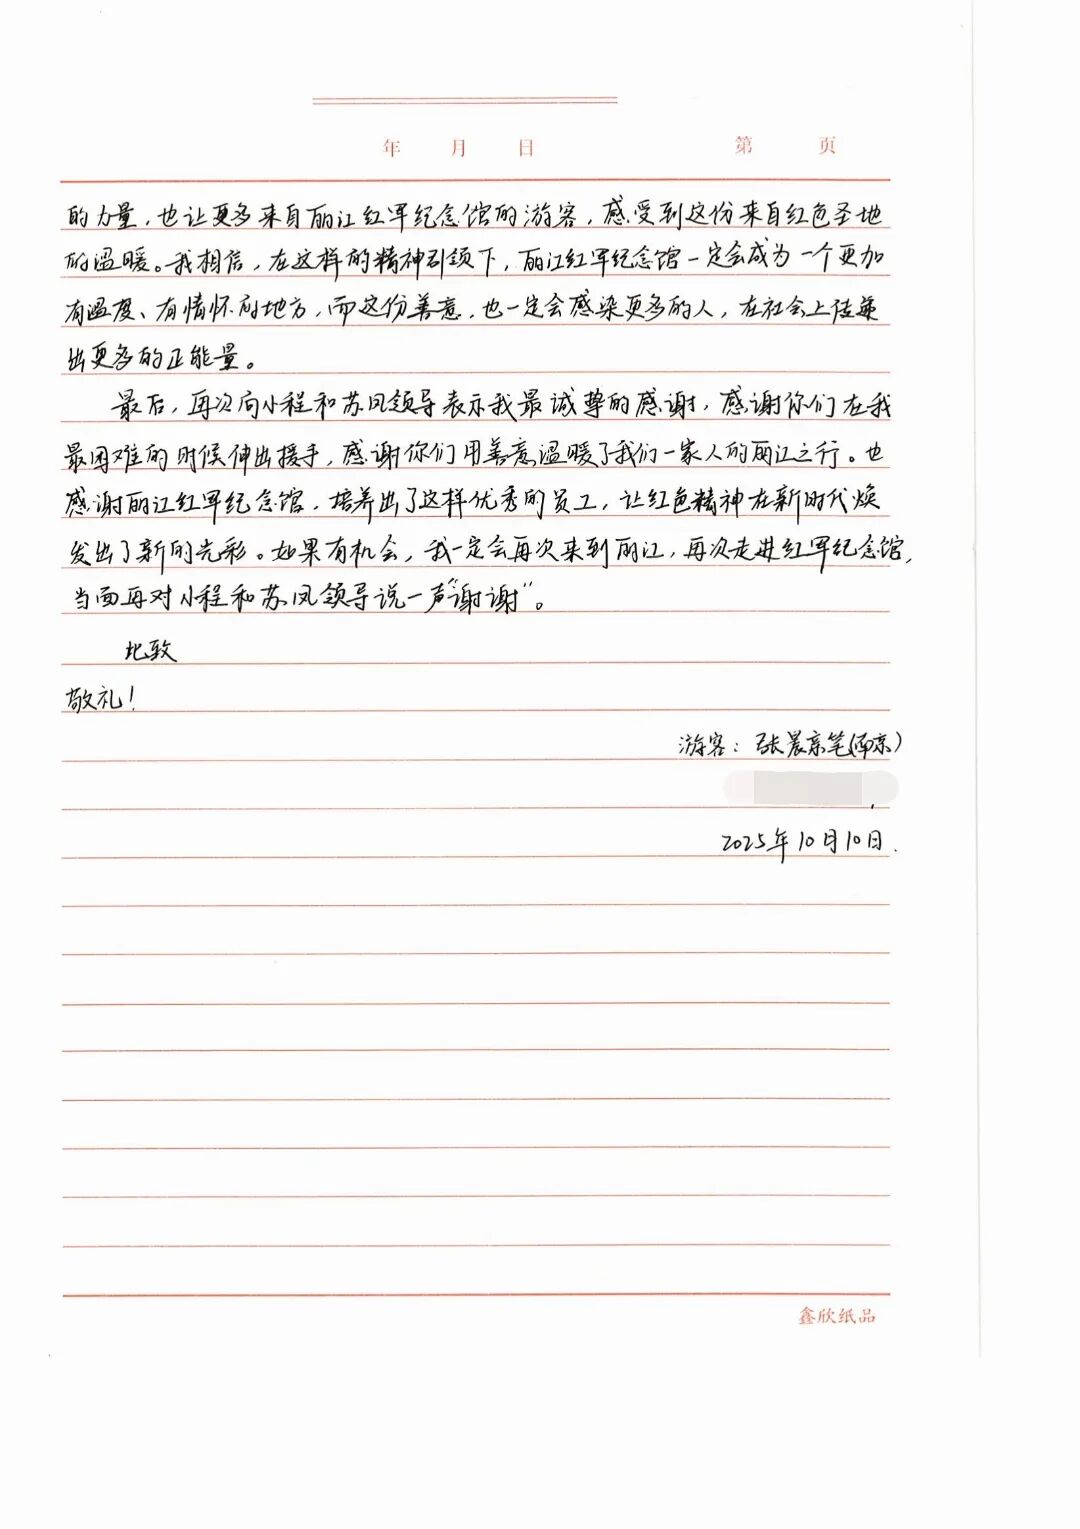 年 月 日 第 页
的力量，也让更多来自丽江红军纪念馆的游客，感受到这份来自红色圣地
的温暖。我相信，在这样的精神引领下，丽江红军纪念馆一定会成为一个更加
有温度、有情怀的地方，而这份善意，也一定会感染更多的人，在社会上传递
出更多的正能量。
最后，再次向小程和苏凤领导表示我最诚挚的感谢，感谢你们在我
最困难的时候伸出援手，感谢你们用善意温暖了我们一家人的丽江之行。也
感谢丽江红军纪念馆，培养出了这样优秀的员工，让红色精神在新时代焕
发出了新的光彩。如果有机会，我一定会再次来到丽江，再次走进红军纪念馆，
当面再对小程和苏凤领导说一声“谢谢”。
此致
敬礼！
游客：张晨亲笔(南京)
2025年10月10日.
鑫欣纸品